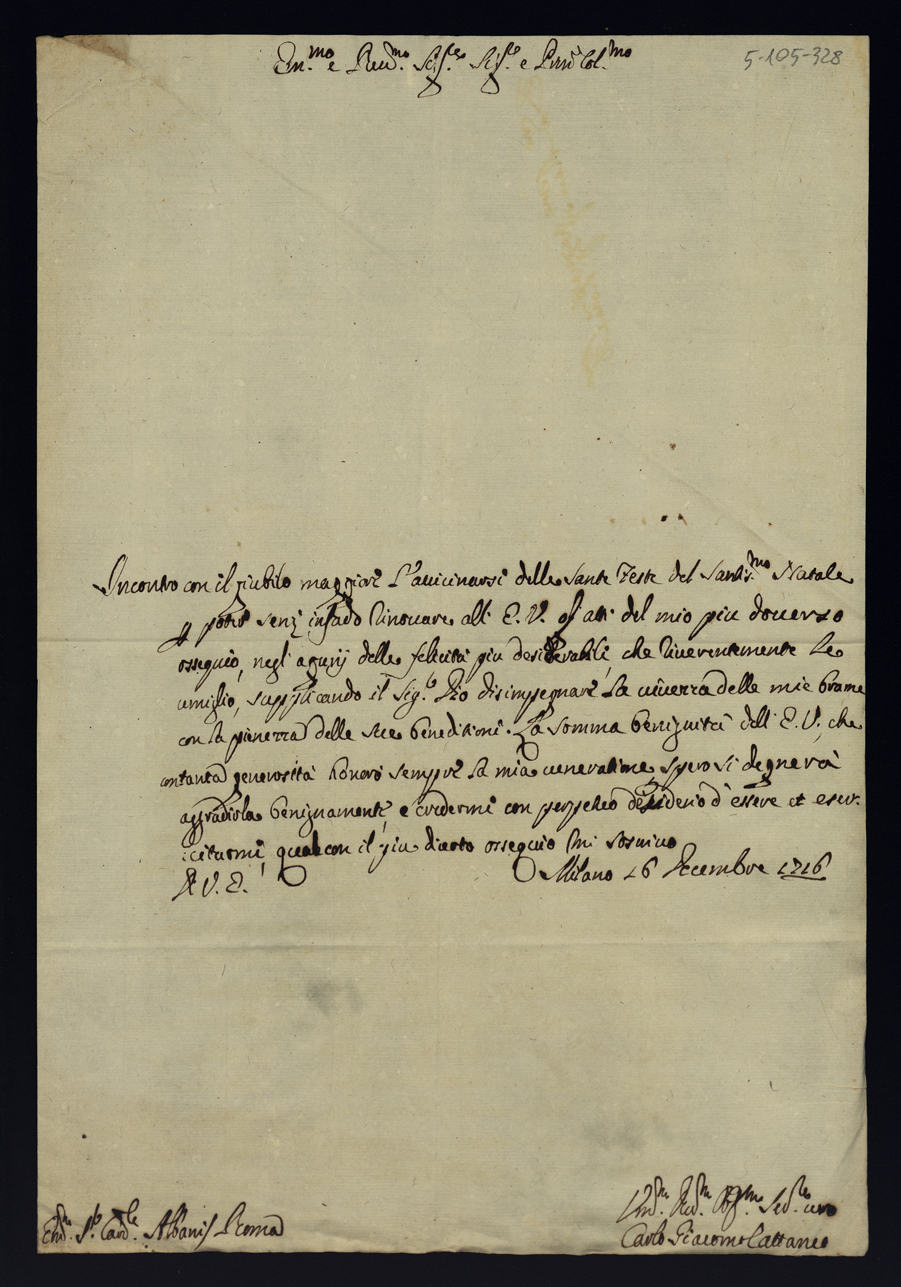 5-105-328
Em.mo e Reu.mo Sig.re Sig.re e Pron Col.mo
Incontro con il giubilo maggiore l'auicinarsi delle Sante Feste del Santis.mo Natale
p poter senz' infado rinouare all' E. V. gl' atti del mio piu douerso
ossequio, negl' agurij delle felicità piu desiderabili, che riuerentemente le
umiglio, supplicando il Sig.r Dio disimpegnare la uiuezza delle mie brame
con la pienezza delle sue beneditioni. La somma benignità dell' E. V., che
con tanta generosità honorò sempre la mia ueneratione, spero si degnerà
aggradirla benignamente, e credermi con perpetuo desiderio d' essere et eser-
:citarmi, qual con il piu diuoto ossequio mi sosriuo
D V. E.
Milano 16 Decembre 1716
Em. S.r Card.le Albani / Roma
Um.mo Deu.mo Obg.mo Ser.re uero
Carlo Giacomo Cattaneo